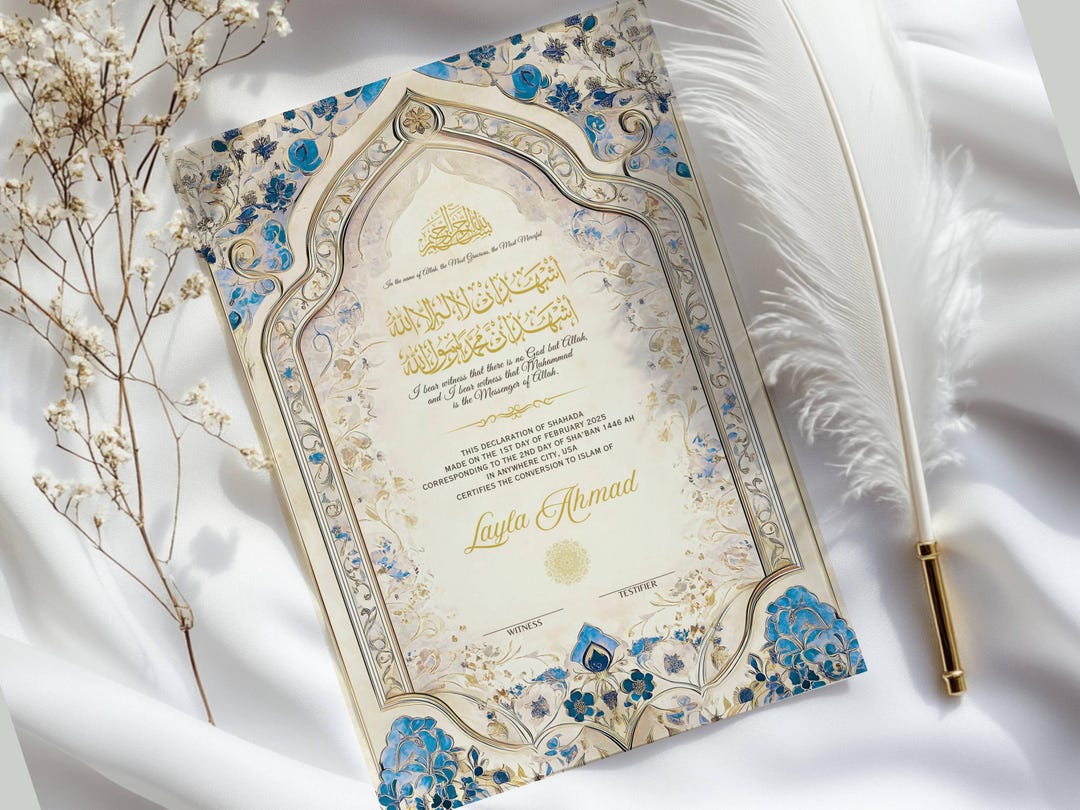 بسم الله الرحمن الرحيم
In the name of Allah, the Most Gracious, the Most Merciful
أشهد ان لا إله إلا الله
أشهد ان محمد رسول الله
I bear witness that there is no God but Allah,
and I bear witness that Muhammad
is the Messenger of Allah.
THIS DECLARATION OF SHAHADA
MADE ON THE 1ST DAY OF FEBRUARY 2025
CORRESPONDING TO THE 2ND DAY OF SHA'BAN 1446 AH
IN ANYWHERE CITY, USA
CERTIFIES THE CONVERSION TO ISLAM OF
Layla Ahmad
WITNESS
TESTIFIER